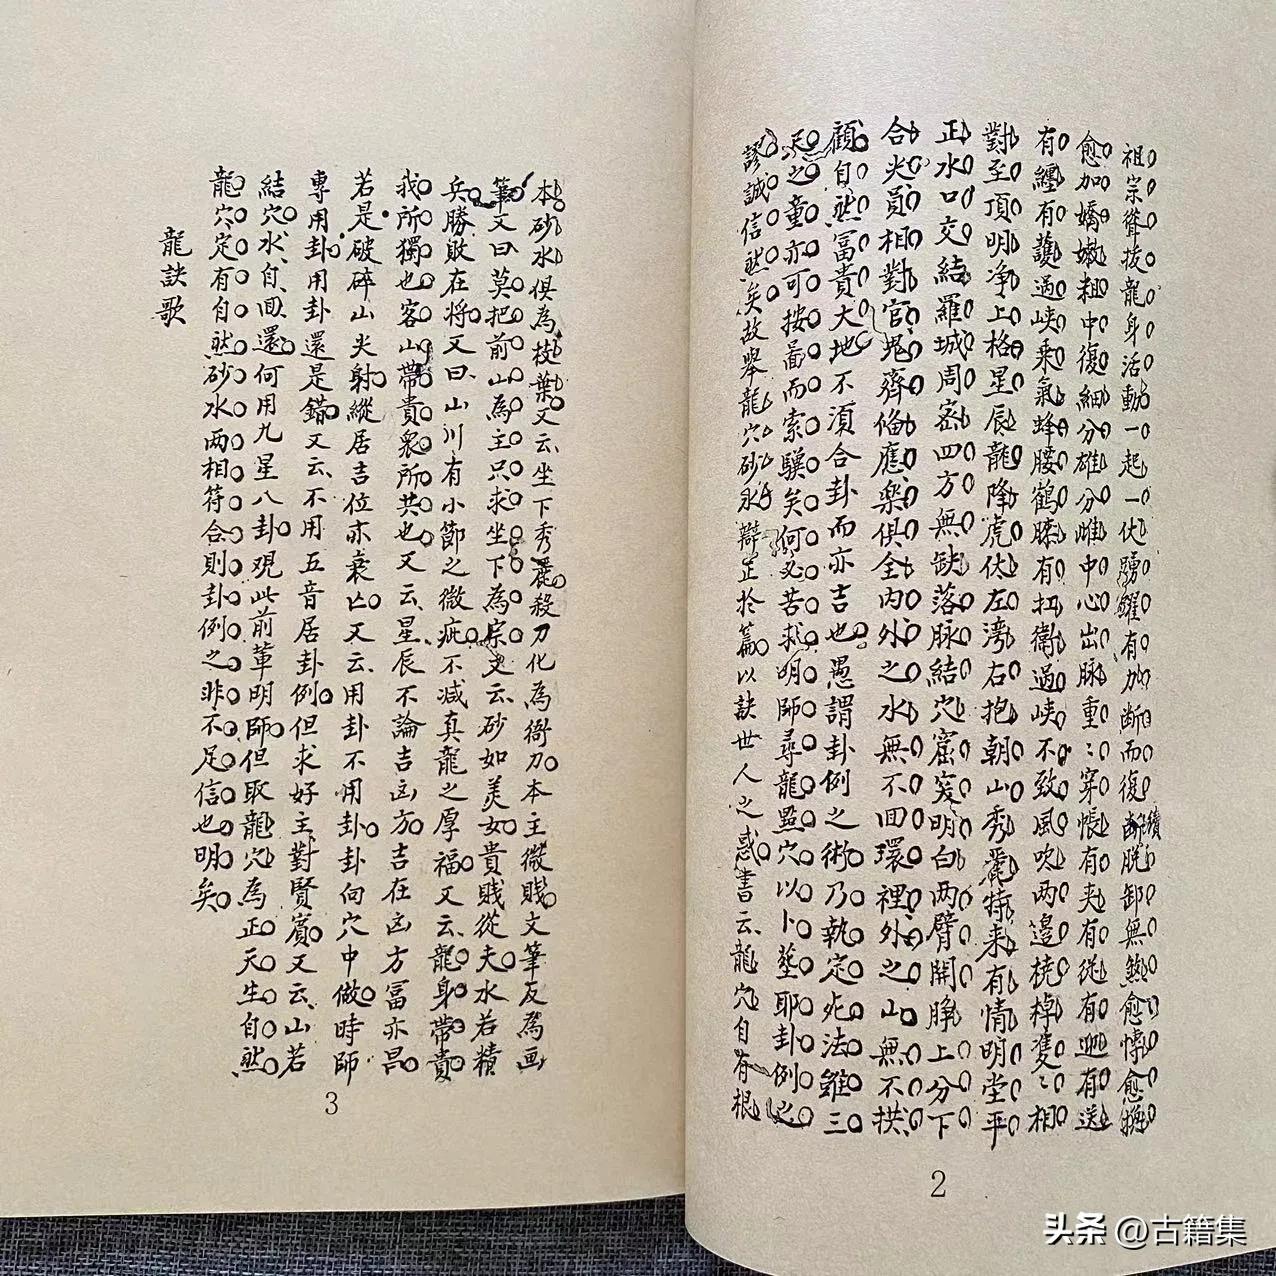 祖宗聳拔龍身活動一起一伏踴躍有加斷而復續斷脫卸無煞愈慱愈換
愈加嬌嫩粗中復細分雄分雌中心出脉重〻穿帳有夾有從有迎有送
有纒有護過峡乘氣蜂腰鶴膝有扛衛過峡不致風吹两邉橈棹隻〻相
對至頂明净上格星辰龍降虎伏左湾右抱朝山秀麗特来有情明堂平
正水口交結羅城周宻四方無缺落脉結穴窟突明白两臂開睁上分下
合尖員相對官鬼齊俻應樂俱全内外之水無不囬環裡外之山無不拱
顧自然冨貴大地不湏合卦而亦吉也愚謂卦例之術乃執定死法雖三
尺之童亦可按啚而索驥矣何必苦求明師尋龍㸃穴以卜塟耶卦例之
謬誠信然矣故舉龍穴砂水辯正於篇以訣世人之惑書云龍穴自有根
2
本砂水俱為枝葉又云坐下秀麗殺刀化為衙刀本主微賎文筆反為画
筆又曰莫把前山為主只求坐下為宗又云砂如美女貴賎從夫水若精
兵勝敗在将又曰山川有小節之微疵不减真龍之厚福又云龍身帶貴
我所獨也客山帶貴衆所共也又云星辰不論吉凶方吉在凶方冨亦昌
若是破碎山尖射縱居吉位亦衰亡又云用卦不用卦卦向穴中做時師
專用卦用卦還是錯又云不用五音居卦例但求好主對賢賓又云山若
結穴水自囬還何用九星八卦覌此前軰明師但取龍穴為正天生自然
龍穴定有自然砂水两相符合則卦例之非不足信也明矣
龍訣歌
3
头条 @古籍集